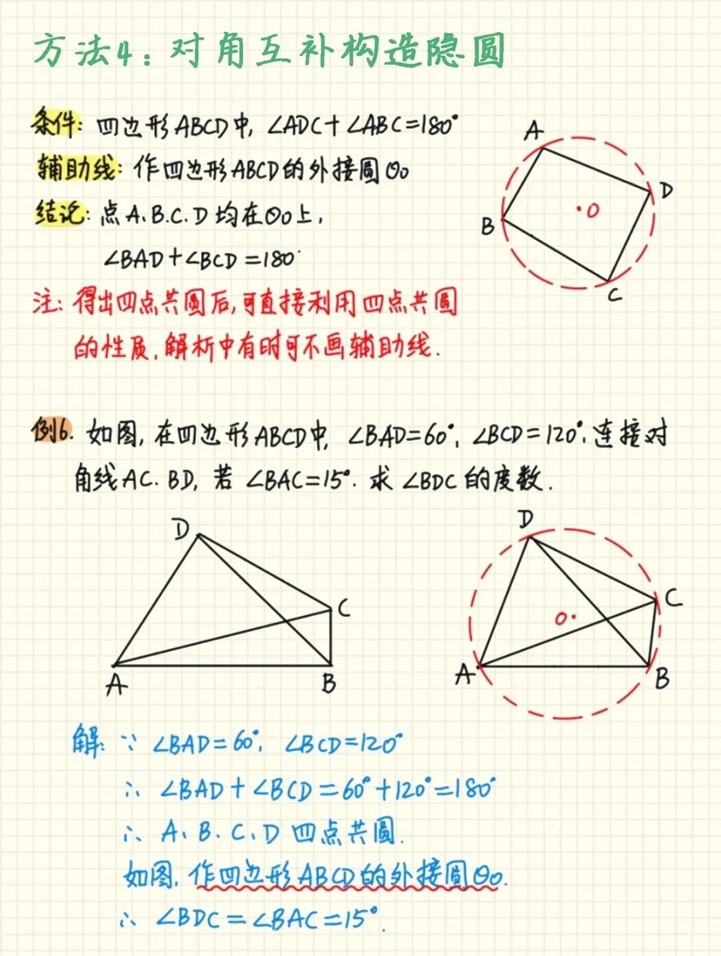 方法4：对角互补构造隐圆
条件：四边形ABCD中，∠ADC+∠ABC=180°
辅助线：作四边形ABCD的外接圆⊙O
结论：点A、B、C、D均在⊙O上，
∠BAD+∠BCD=180°
注：得出四点共圆后，可直接利用四点共圆
的性质，解析中有时可不画辅助线．
A
D
O
B
C
例6．如图，在四边形ABCD中，∠BAD=60°，∠BCD=120°，连接对
角线AC、BD，若∠BAC=15°．求∠BDC的度数．
D
C
A
B
D
C
O
A
B
解：∵ ∠BAD=60°，∠BCD=120°
∴ ∠BAD+∠BCD=60°+120°=180°
∴ A、B、C、D四点共圆．
如图，作四边形ABCD的外接圆⊙O．
∴ ∠BDC=∠BAC=15°．